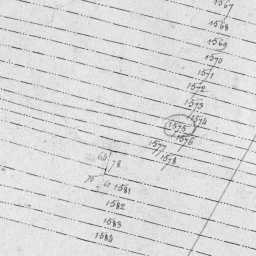 1567
1568
1569
1570
1571
1572
1573
1574
1575
1576
1577
1578
78
1581
1582
1583
1585